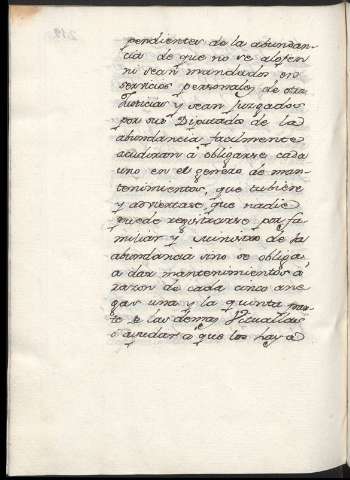 pendientes de la abundan-
cia de que no se alojen
ni sean mandados en
servicios personales de otras
Justicias y sean Juzgados
por su Diputado de la
abundancia facilmente
acudiran á obligarse cada
uno en el genero de man-
tenimientos, que tubiere
y adviertase que nadie
puede registrarse por fa-
miliar y Ministro de la
abundancia sino se obliga
a dar mantenimientos á
razon de cada cinco ane
gas una y la quinta par-
te de las demas Vituallas
ó ayudar a que los hay a